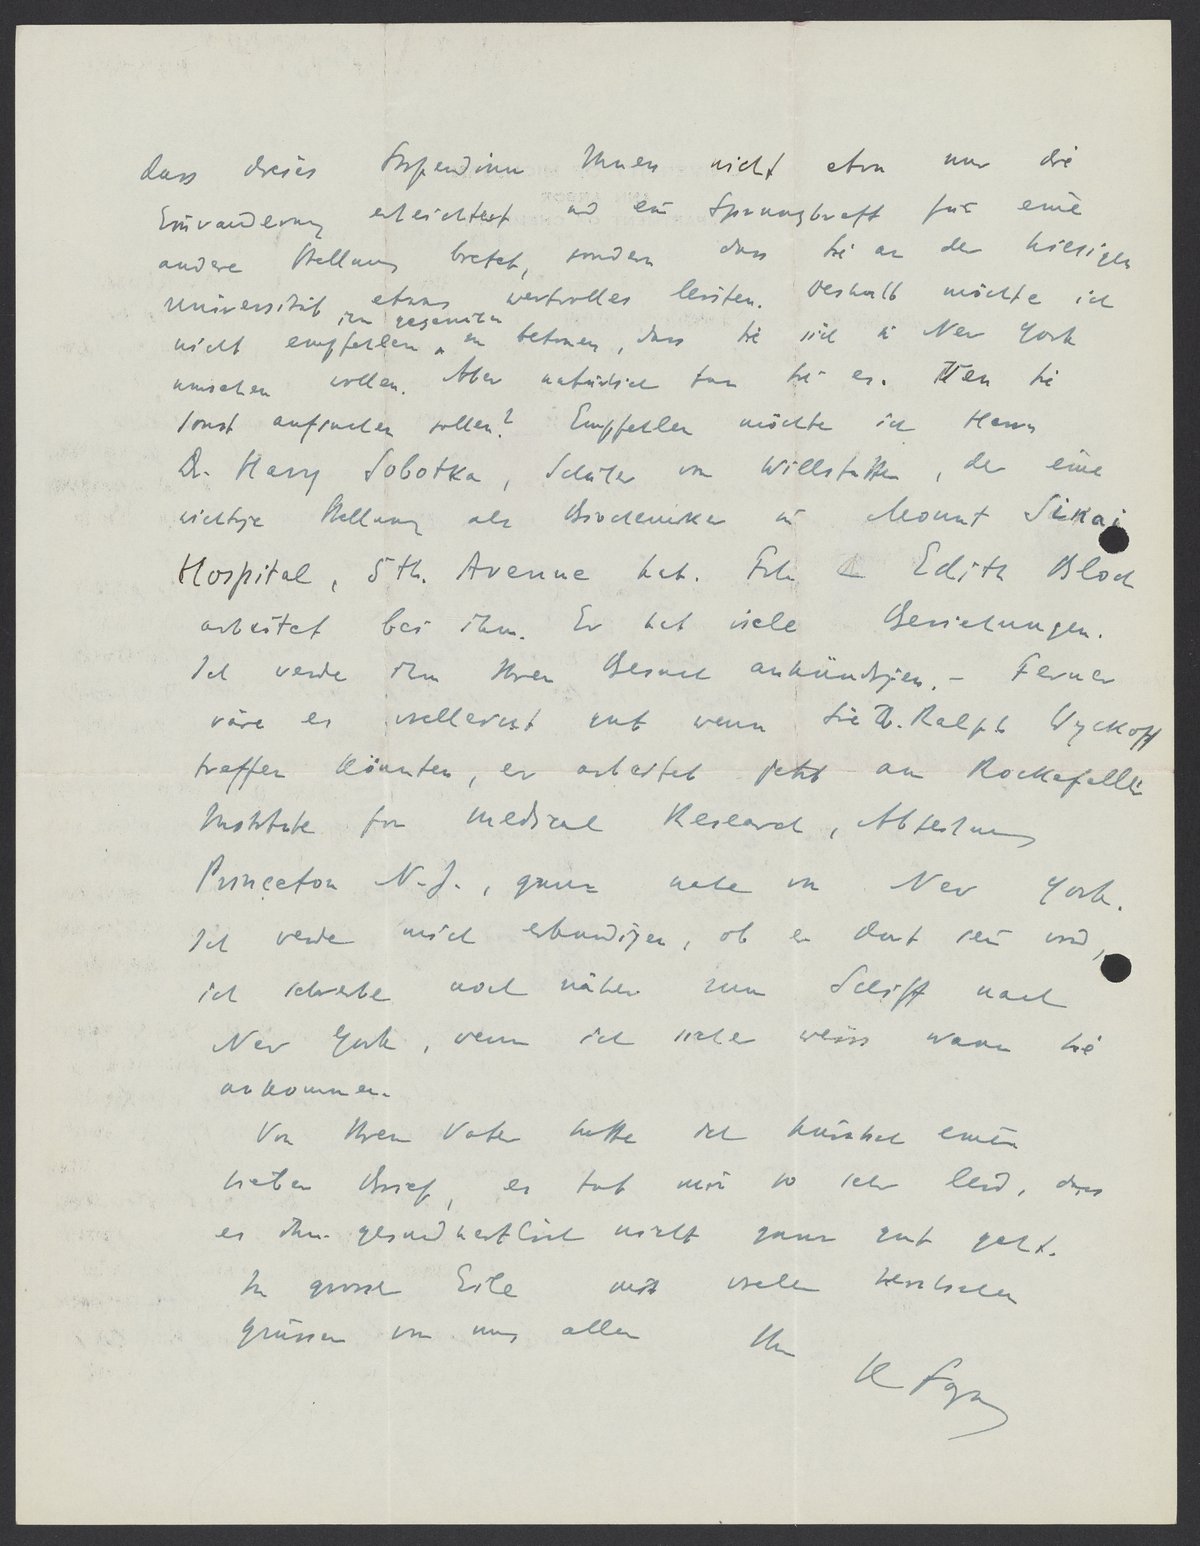 dass dieses Stipendium Ihnen nicht etwa nur die
Einwanderung erleichtert und ein Sprungbrett für eine
andere Stellung bietet, sondern dass Sie an der hiesigen
Universität etwas wertvolles leisten. Deshalb möchte ich
ihm gegenüber
nicht empfehlen zu betonen, dass Sie sich in New York
umsehen wollen. Aber natürlich tun Sie es. Wen Sie
sonst aufsuchen sollen? Empfehlen möchte ich Herrn
Dr. Harry Sobotka, Schüler von Willstätter, der eine
wichtige Stellung als Biochemiker in Mount Sinai
Hospital, 5th. Avenue hat. Frl. Edith Bloch
arbeitet bei ihm. Er hat viele Beziehungen.
Ich werde ihm Ihren Besuch ankündigen. – Ferner
wäre es vielleicht gut wenn Sie Dr. Ralph Wyckoff
treffen könnten, er arbeitet jetzt am Rockefeller
Institute for medical Research, Abteilung
Princeton N.J., ganz nahe von New York.
Ich werde mich erkundigen, ob er dort sein wird,
ich schreibe noch näher zum Schiff nach
New York, wenn ich sicher weiss wann Sie
ankommen.
Von Ihrem Vater hatte ich kürzlich einen
lieben Brief, es tut mir so sehr leid, dass
es ihm gesundheitlich nicht ganz gut geht.
In grosser Eile mit vielen herzlichen
Grüssen von uns allen Ihr
K Fajans